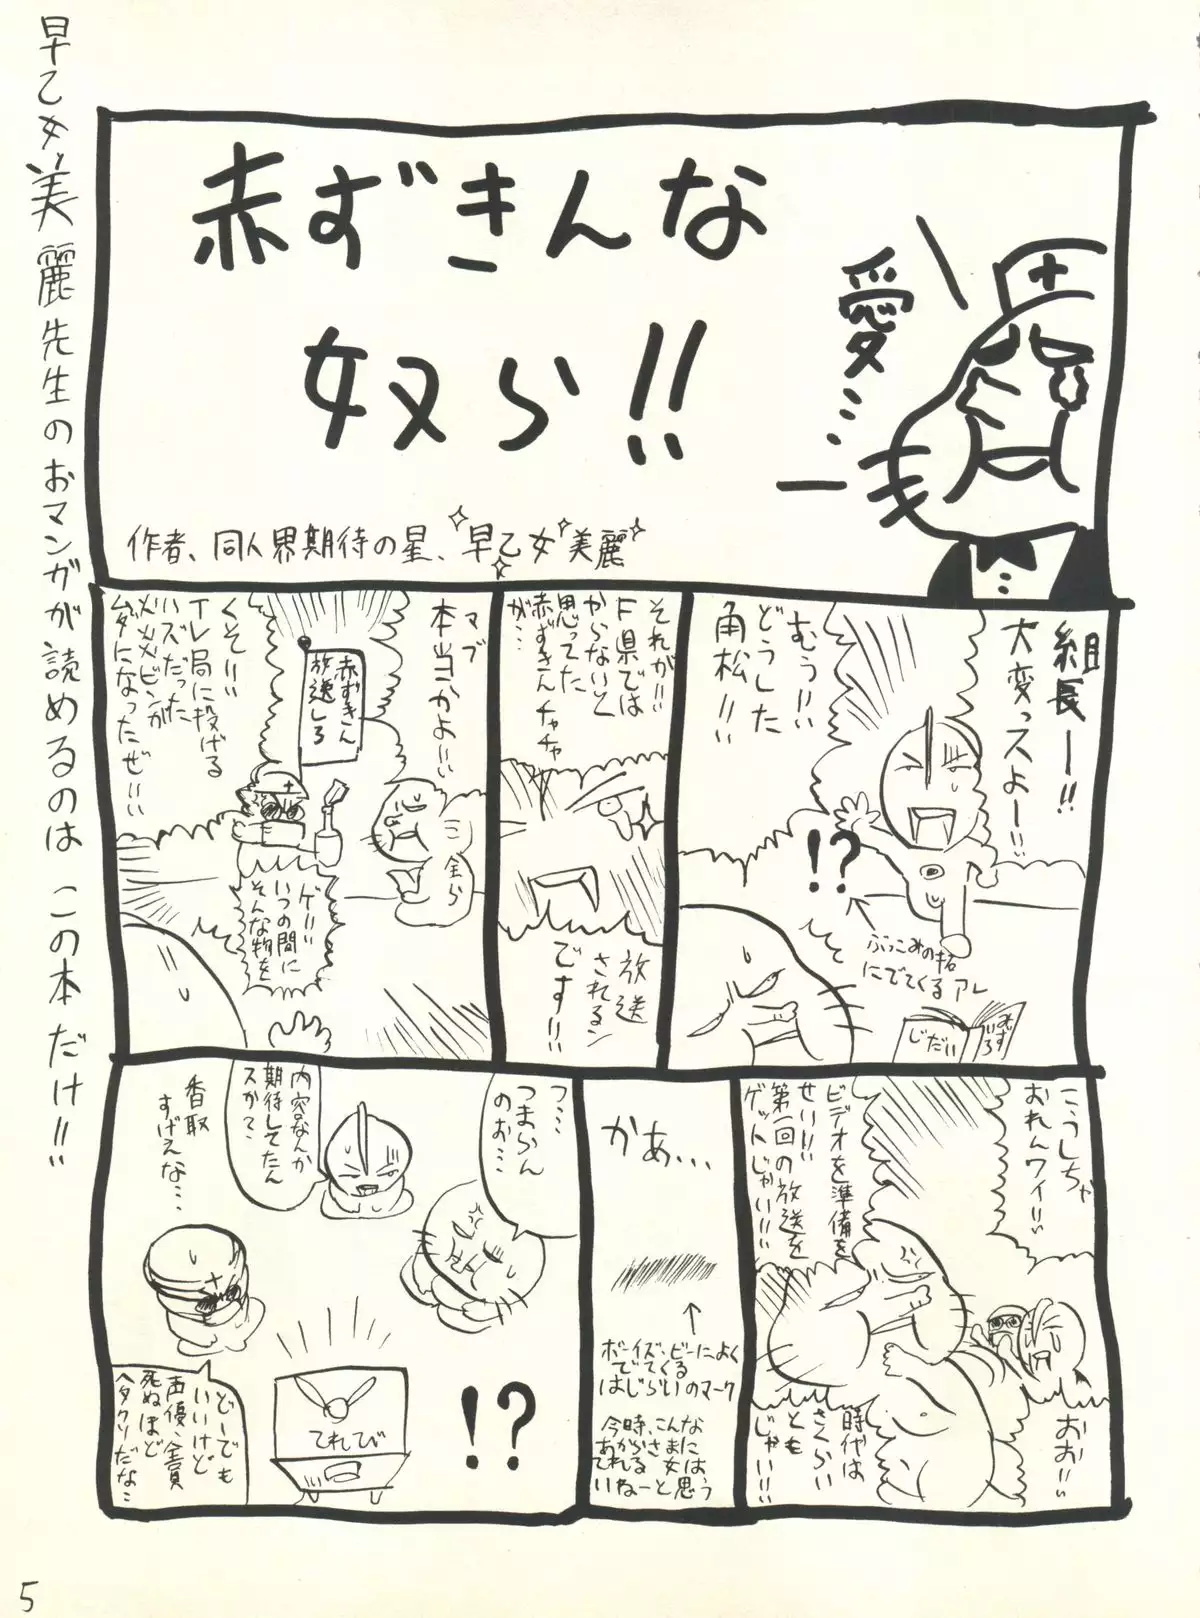 早乙女美麗先生のおマンガが読めるのは この本だけ!!
赤ずきんな
奴ら!!
愛…
作者、同人界期待の星、早乙女美麗
組長ー!!
大変っスよー!!
むう!!
どうした
角松!!
!?
ぶっこみの拓
にでてくるアレ
じだい
それが!!
F県では
やらないと
思ってた
赤ずきんチャチャ
が…
放送
されるン
です!!
マブ
本当かよ!!
赤ずきん
放送しろ
金ら
くそ!!!
TV局に投げる
ハズだった
ダになったぜ!!
ゲ!!!
いつの間に
そんな物を
こうしちゃ
おれんワイ!!
ビデオを準備を
せい!!!
第一回の放送を
ゲットじゃい!!!
おお!!
時代は
さくらい
とも
じゃい!!
かあ…
ボーイズ・ビーによく
でてくる
はじらいのマーク
今時、こんな
あからさまに
てれる女は
いねーと思う
フ…
つまらん
のお…
内容なんか
期待してたん
スか?
香取
すげえな…
てれてび
!?
どーでも
いいけど
声優、全員
死ぬほど
ヘタクソだな…
5